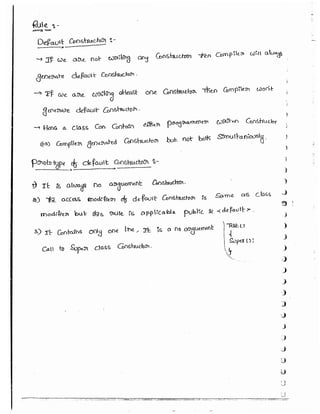 Rule :-
Default Constructor :-
→ If we are not writing any Constructor then Compiler will always
generate default Constructor.
→ If we are writing atleast one Constructor then Compiler won't
generate default Constructor.
→ Hence a class Can Contain either programmer written Constructor
(or) Compiler generated Constructor but not both Simultaniously.
Prototype of default Constructor :-
1) It is always no arguement Constructor.
2) The access modifier of default Constructor is Same as class
modifier but this rule is applicable public & <default>.
3) It Contains only one line, It is a no arguement
Call to Super class Constructor.
Test()
{
Super();
}